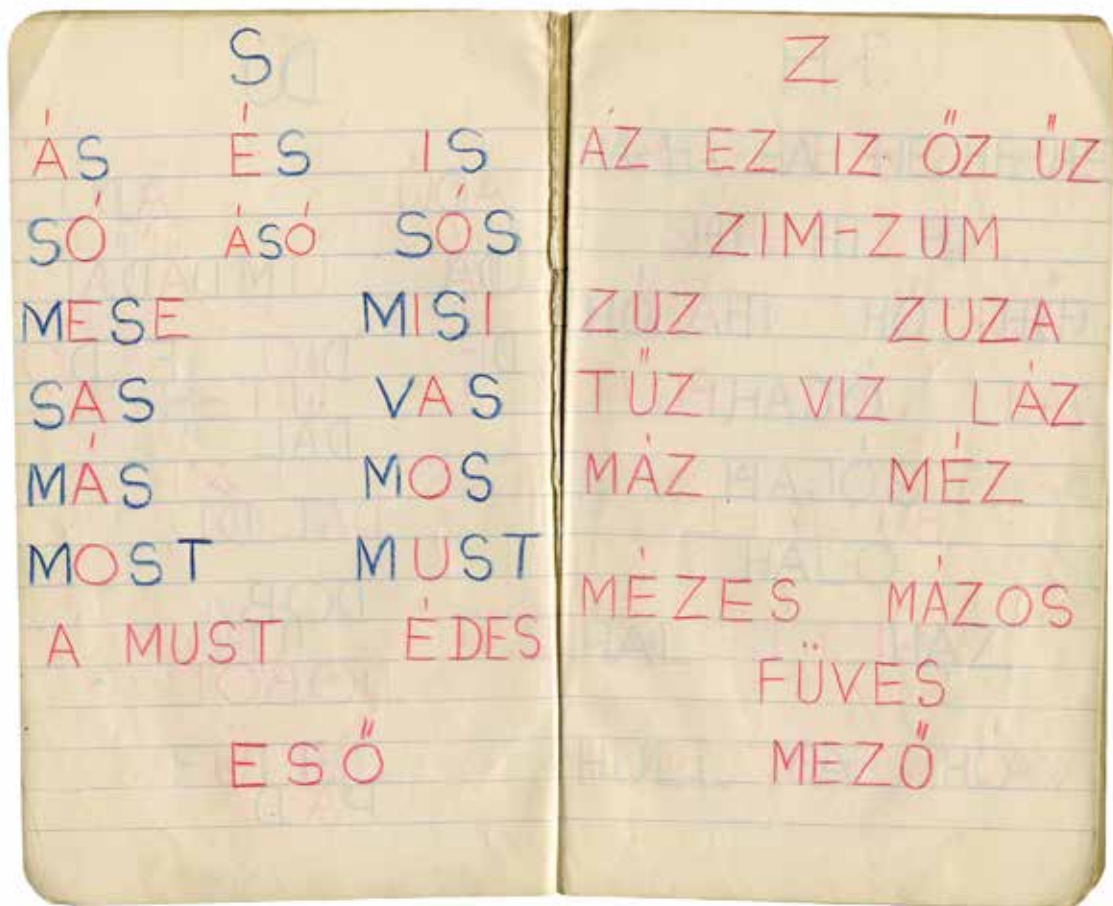 S
ÁS ÉS IS
SÓ ÁSÓ SÓS
MESE MISI
SAS VAS
MÁS MOS
MOST MUST
A MUST ÉDES
ESŐ
Z
AZ EZ IZ ŐZ ŰZ
ZIM-ZUM
ZÚZ ZUZA
TŰZ VIZ LÁZ
MÁZ MÉZ
MÉZES MÁZOS
FÜVES
MEZŐ